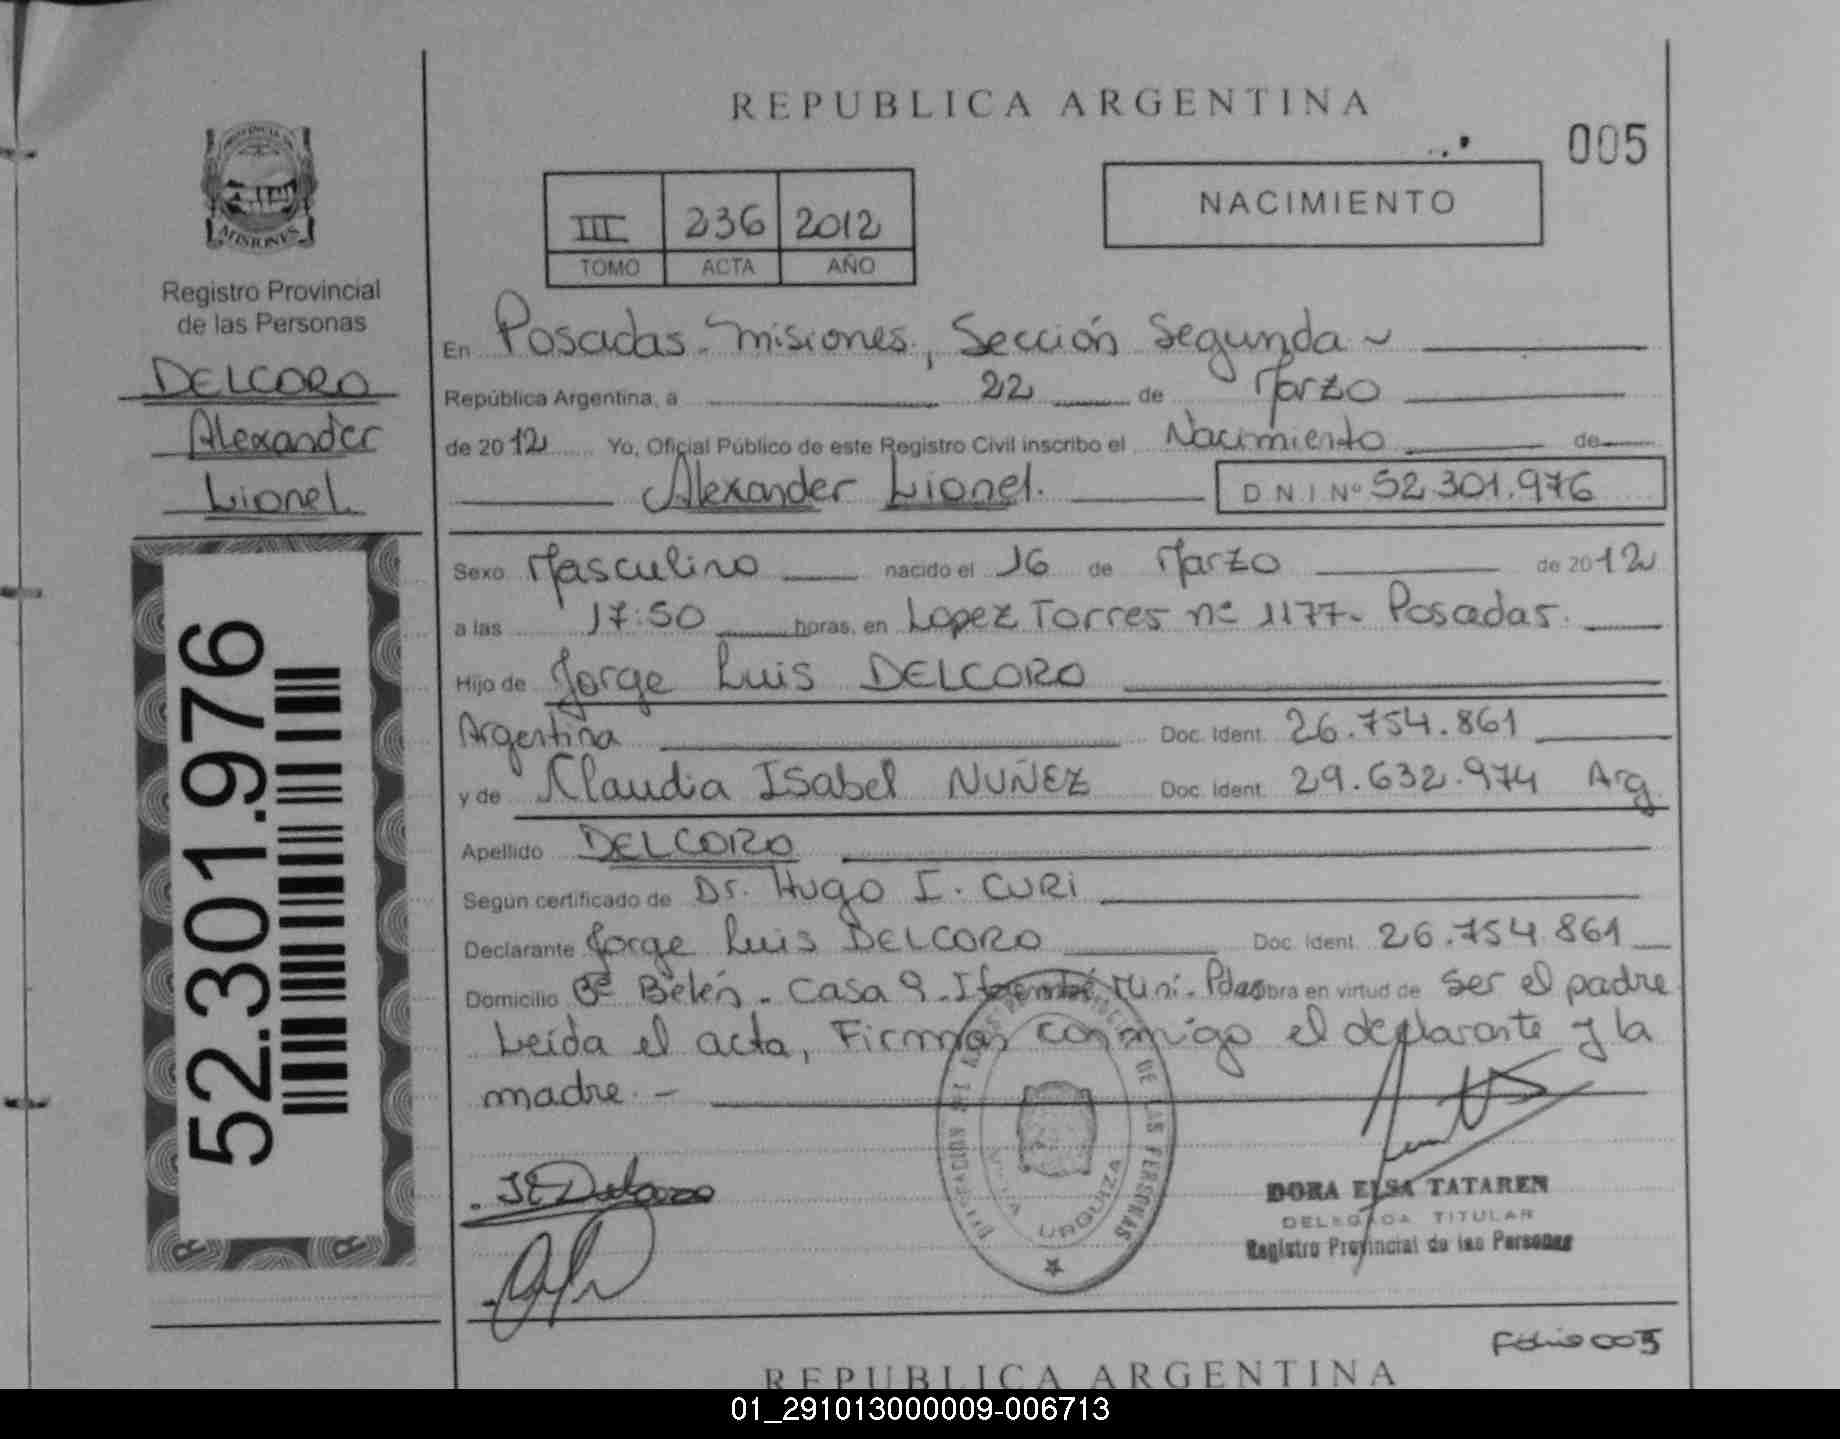 REPUBLICA ARGENTINA
005
NACIMIENTO
III 236 2012
TOMO ACTA AÑO
PROVINCIA DE
MISIONES
Registro Provincial
de las Personas
DELCORO
Alexander
Lionel
52.301.976
En Posadas - Misiones, Sección Segunda
República Argentina, a 22 de Marzo
de 2012 Yo, Oficial Público de este Registro Civil inscribo el Nacimiento de
Alexander Lionel. DNI Nº 52.301.976
Sexo Masculino nacido el 16 de Marzo de 2012
a las 17:50 horas, en Lopez Torres nº 1177 - Posadas.
Hijo de Jorge Luis DELCORO
Argentina Doc. Ident. 26.754.861
y de Claudia Isabel NUÑEZ Doc. Ident. 29.632.974 Arg.
Apellido DELCORO
Según certificado de Dr. Hugo I. CURI
Declarante Jorge Luis DELCORO Doc. Ident. 26.754.861
Domicilio Bº Belén - Casa 9 - Itaembé Miní - Pdas obra en virtud de ser el padre
Leída el acta, Firman conmigo el declarante y la
madre. -
DE LAS PERSONAS
URQUIZA
DORA ELSA TATAREN
DELEGADA TITULAR
Registro Provincial de las Personas
Folio 005
REPUBLICA ARGENTINA
01_291013000009-006713